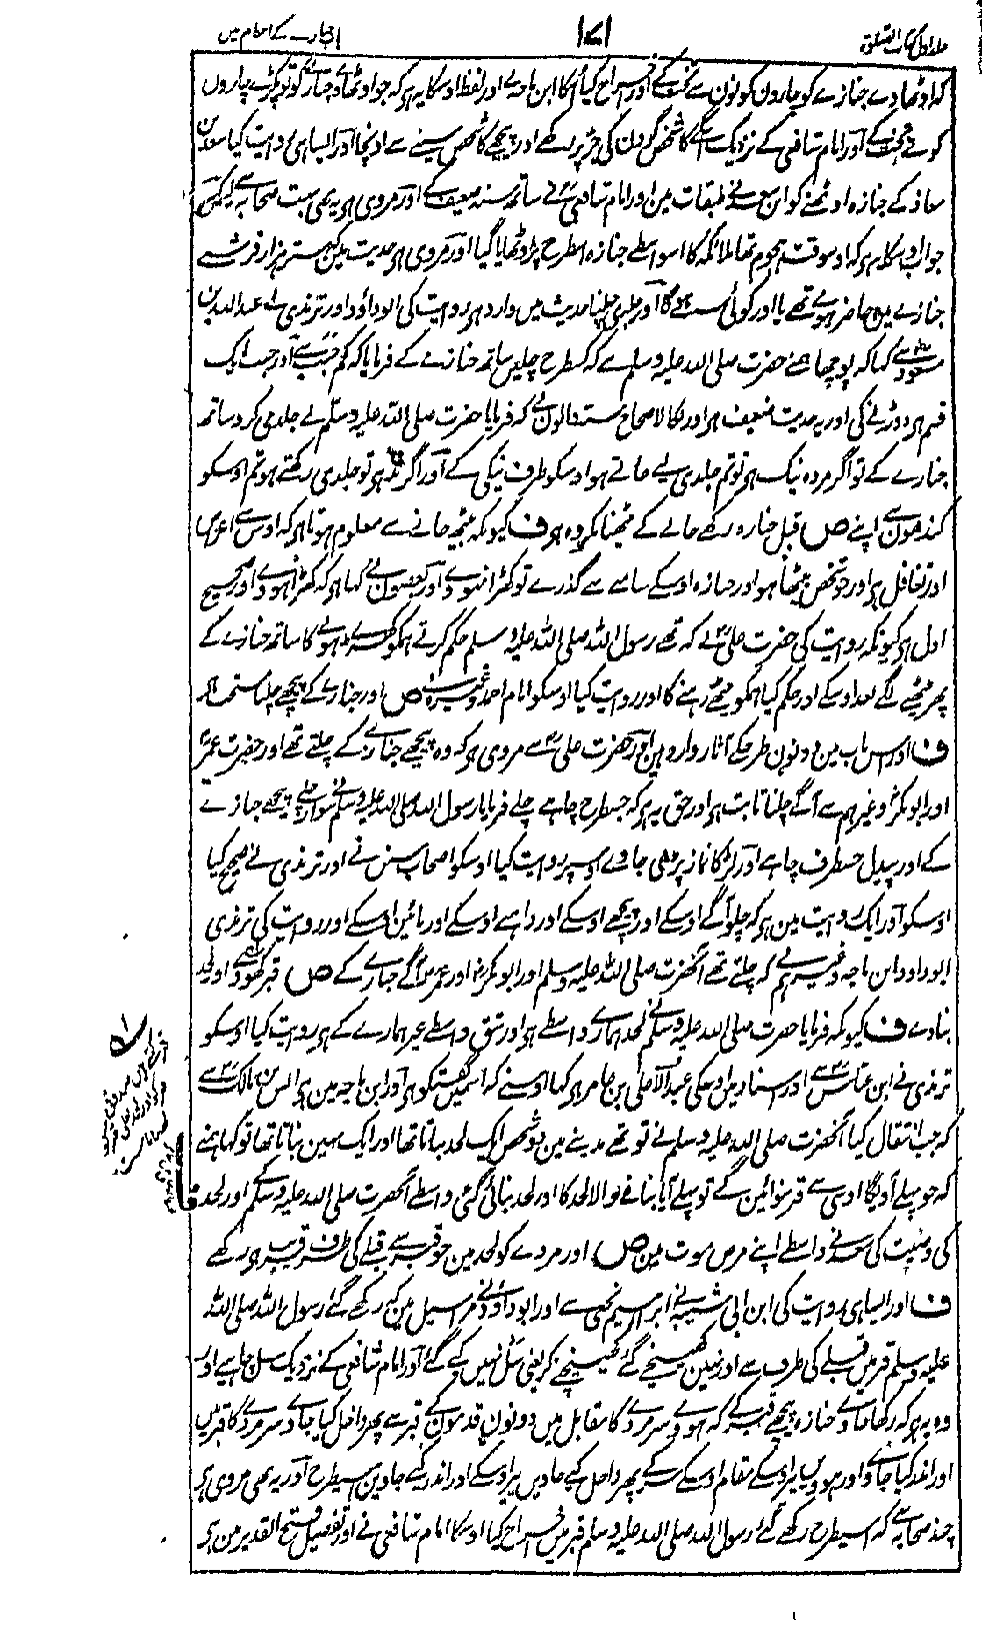 جلد اول کتاب الصلوٰۃ
۱۷۱
جنازے کے احکام میں
کہ اوٹھاوے جنازے کو چارون کونون سے تخت کے اور اخراج کیا اسکا ابن ماجہ نے اور لفظ اوسکا یہ ہر کہ جو اوٹھاوے جنازے کو تو پکڑے چارون
کونے تخت کے اور امام شافعی کے نزدیک آگے کا شخص گردن کی جڑ پر رکھے اور پیچھے کا شخص سینے سے اونچا اور ایسا ہی روایت کیا سعد بن
معاذ کے جنازہ اوٹھنے کو ابن سعد نے طبقات مین اور امام شافعی نے ساتھ سند ضعیف کے اور مروی ہر یہ بھی بہت صحابہ سے لیکن
جواب اوسکا یہ ہر کہ اوسوقت ہجوم تھا ملائکہ کا اسواسطے جنازہ اسطرح پر اوٹھایا گیا اور مروی ہر حدیث مین کہ ستر ہزار فرشتے
جنازے پر حاضر ہوئے تھے یا اور کوئی سبب ہوگا اور جلدی چلنا حدیث میں وارد ہر روایت کی ابو داؤد اور ترمذی نے عبد اللہ بن
مسعود سے کہا کہ پوچھا ہمنے حضرت صلی اللہ علیہ وسلم سے کہ کسطرح چلیں ساتھ جنازے کے فرمایا کہ کم خبب سے اور خبب ایک
قسم ہر دوڑنے کی اور یہ حدیث ضعیف ہر اور نکالا صحاح ستہ والون نے کہ فرمایا حضرت صلی اللہ علیہ وسلم نے جلدی کرو ساتھ
جنازے کے تو اگر مردہ نیک ہر تو تم جلدی لیے جاتے ہو اوسکو طرف نیکی کے اور اگر بد ہر تو جلدی رکھتے ہو تم اوسکو
کندھون سے اپنے ص قبل جنازہ رکھے جانے کے بیٹھنا مکروہ ہر ف کیونکہ بیٹھ جانے سے معلوم ہوتا ہر کہ اوس سے اعراض
اور تغافل ہر اور جو شخص بیٹھا ہو اور جنازہ اوسکے سامنے سے گذرے تو کھڑا نہووے اور بعضون نے کہا ہر کہ کھڑا ہووے اور صحیح
اول ہر کیونکہ روایت کی حضرت علی نے کہ تھے رسول اللہ صلی اللہ علیہ وسلم حکم کرتے ہمکو کھڑے ہونے کا ساتھ جنازے کے
پھر بیٹھنے لگے بعد اوسکے اور حکم کیا ہمکو بیٹھے رہنے کا اور روایت کیا اوسکو امام احمد وغیرہ نے ص اور جنازے کے پیچھے چلنا مستحب ہر
ف اور اس باب مین دونون طرحکے آثار وارد ہین اور حضرت علی سے مروی ہر کہ وہ پیچھے جنازے کے چلتے تھے اور حضرت عمر
اور ابو بکر وغیرہم سے آگے چلنا ثابت ہر اور حق یہ ہر کہ جسطرح چاہے چلے فرمایا رسول اللہ صلی اللہ علیہ وسلم نے سوار چلے پیچھے جنازے
کے اور پیدل جسطرف چاہے اور لڑکا نماز پڑھی جاوے اوسپر روایت کیا اوسکو اصحاب سنن نے اور ترمذی نے صحیح کیا
اوسکو اور ایک روایت مین ہر کہ چلو آگے اوسکے اور پیچھے اوسکے اور داہنے اوسکے اور بائین اوسکے اور روایت کی ترمذی
ابو داود ابن ماجہ وغیرہم نے کہ چلتے تھے آنحضرت صلی اللہ علیہ وسلم اور ابو بکر اور عمر آگے جنازے کے ص قبر کھودی اور لحد
بناوے ف کیونکہ فرمایا حضرت صلی اللہ علیہ وسلم نے لحد ہمارے واسطے ہر اور شق واسطے غیر ہمارے کے ہر روایت کیا اوسکو
ترمذی نے ابن عباس سے اور اسناد میں اوسکی عبد الاعلی بن عامر ہر کہا اوسنے کہ اسمیں گفتگو ہر اور ابن ماجہ مین ہر انس بن مالک سے
کہ جب انتقال کیا آنحضرت صلی اللہ علیہ وسلم نے تو تھے مدینے مین دو شخص ایک لحد بناتا تھا اور ایک نہین بناتا تھا تو کہا ہمنے
کہ جو پہلے آویگا اوسی سے قبر بنوائین گے تو پہلے آیا بنانے والا لحد کا اور لحد بنائی گئی واسطے آنحضرت صلی اللہ علیہ وسلم کے اور لحد
کی وصیت کی سعد نے واسطے اپنے مرض موت مین ص اور مردے کو لحد مین جو قبر سے قبلے کی طرف قریب ہر رکھے
ف اور ایسا ہی روایت کی ابن ابی شیبہ نے ابراہیم نخعی سے اور ابو داؤد نے مراسیل مین کہ رکھے گئے رسول اللہ صلی اللہ
علیہ وسلم قبر میں قبلے کی طرف سے اور نہین کھینچے گئے کھینچے کر یعنی سل نہیں کیے گئے اور امام شافعی کے نزدیک سل چاہیے اور
وہ یہ ہر کہ رکھا جاوے جنازہ پیچھے قبر کے کہ ہووے سر مردے کا مقابل میں دونون قدمون کے قبر سے پھر داخل کیا جاوے سر مردے کا قبر میں
اور اندر کیا جاوے اور ہووین پیر اوسکے مقام اوسکے سر کے پھر داخل کیے جاویں پیر اوسکے اور اندر کیے جاوین اسیطرح اور یہ بھی مروی ہر
چند صحابہ سے کہ اسیطرح رکھے گئے رسول اللہ صلی اللہ علیہ وسلم قبر میں اخراج کیا اوسکا امام شافعی نے اور تفصیل فتح القدیر مین ہر